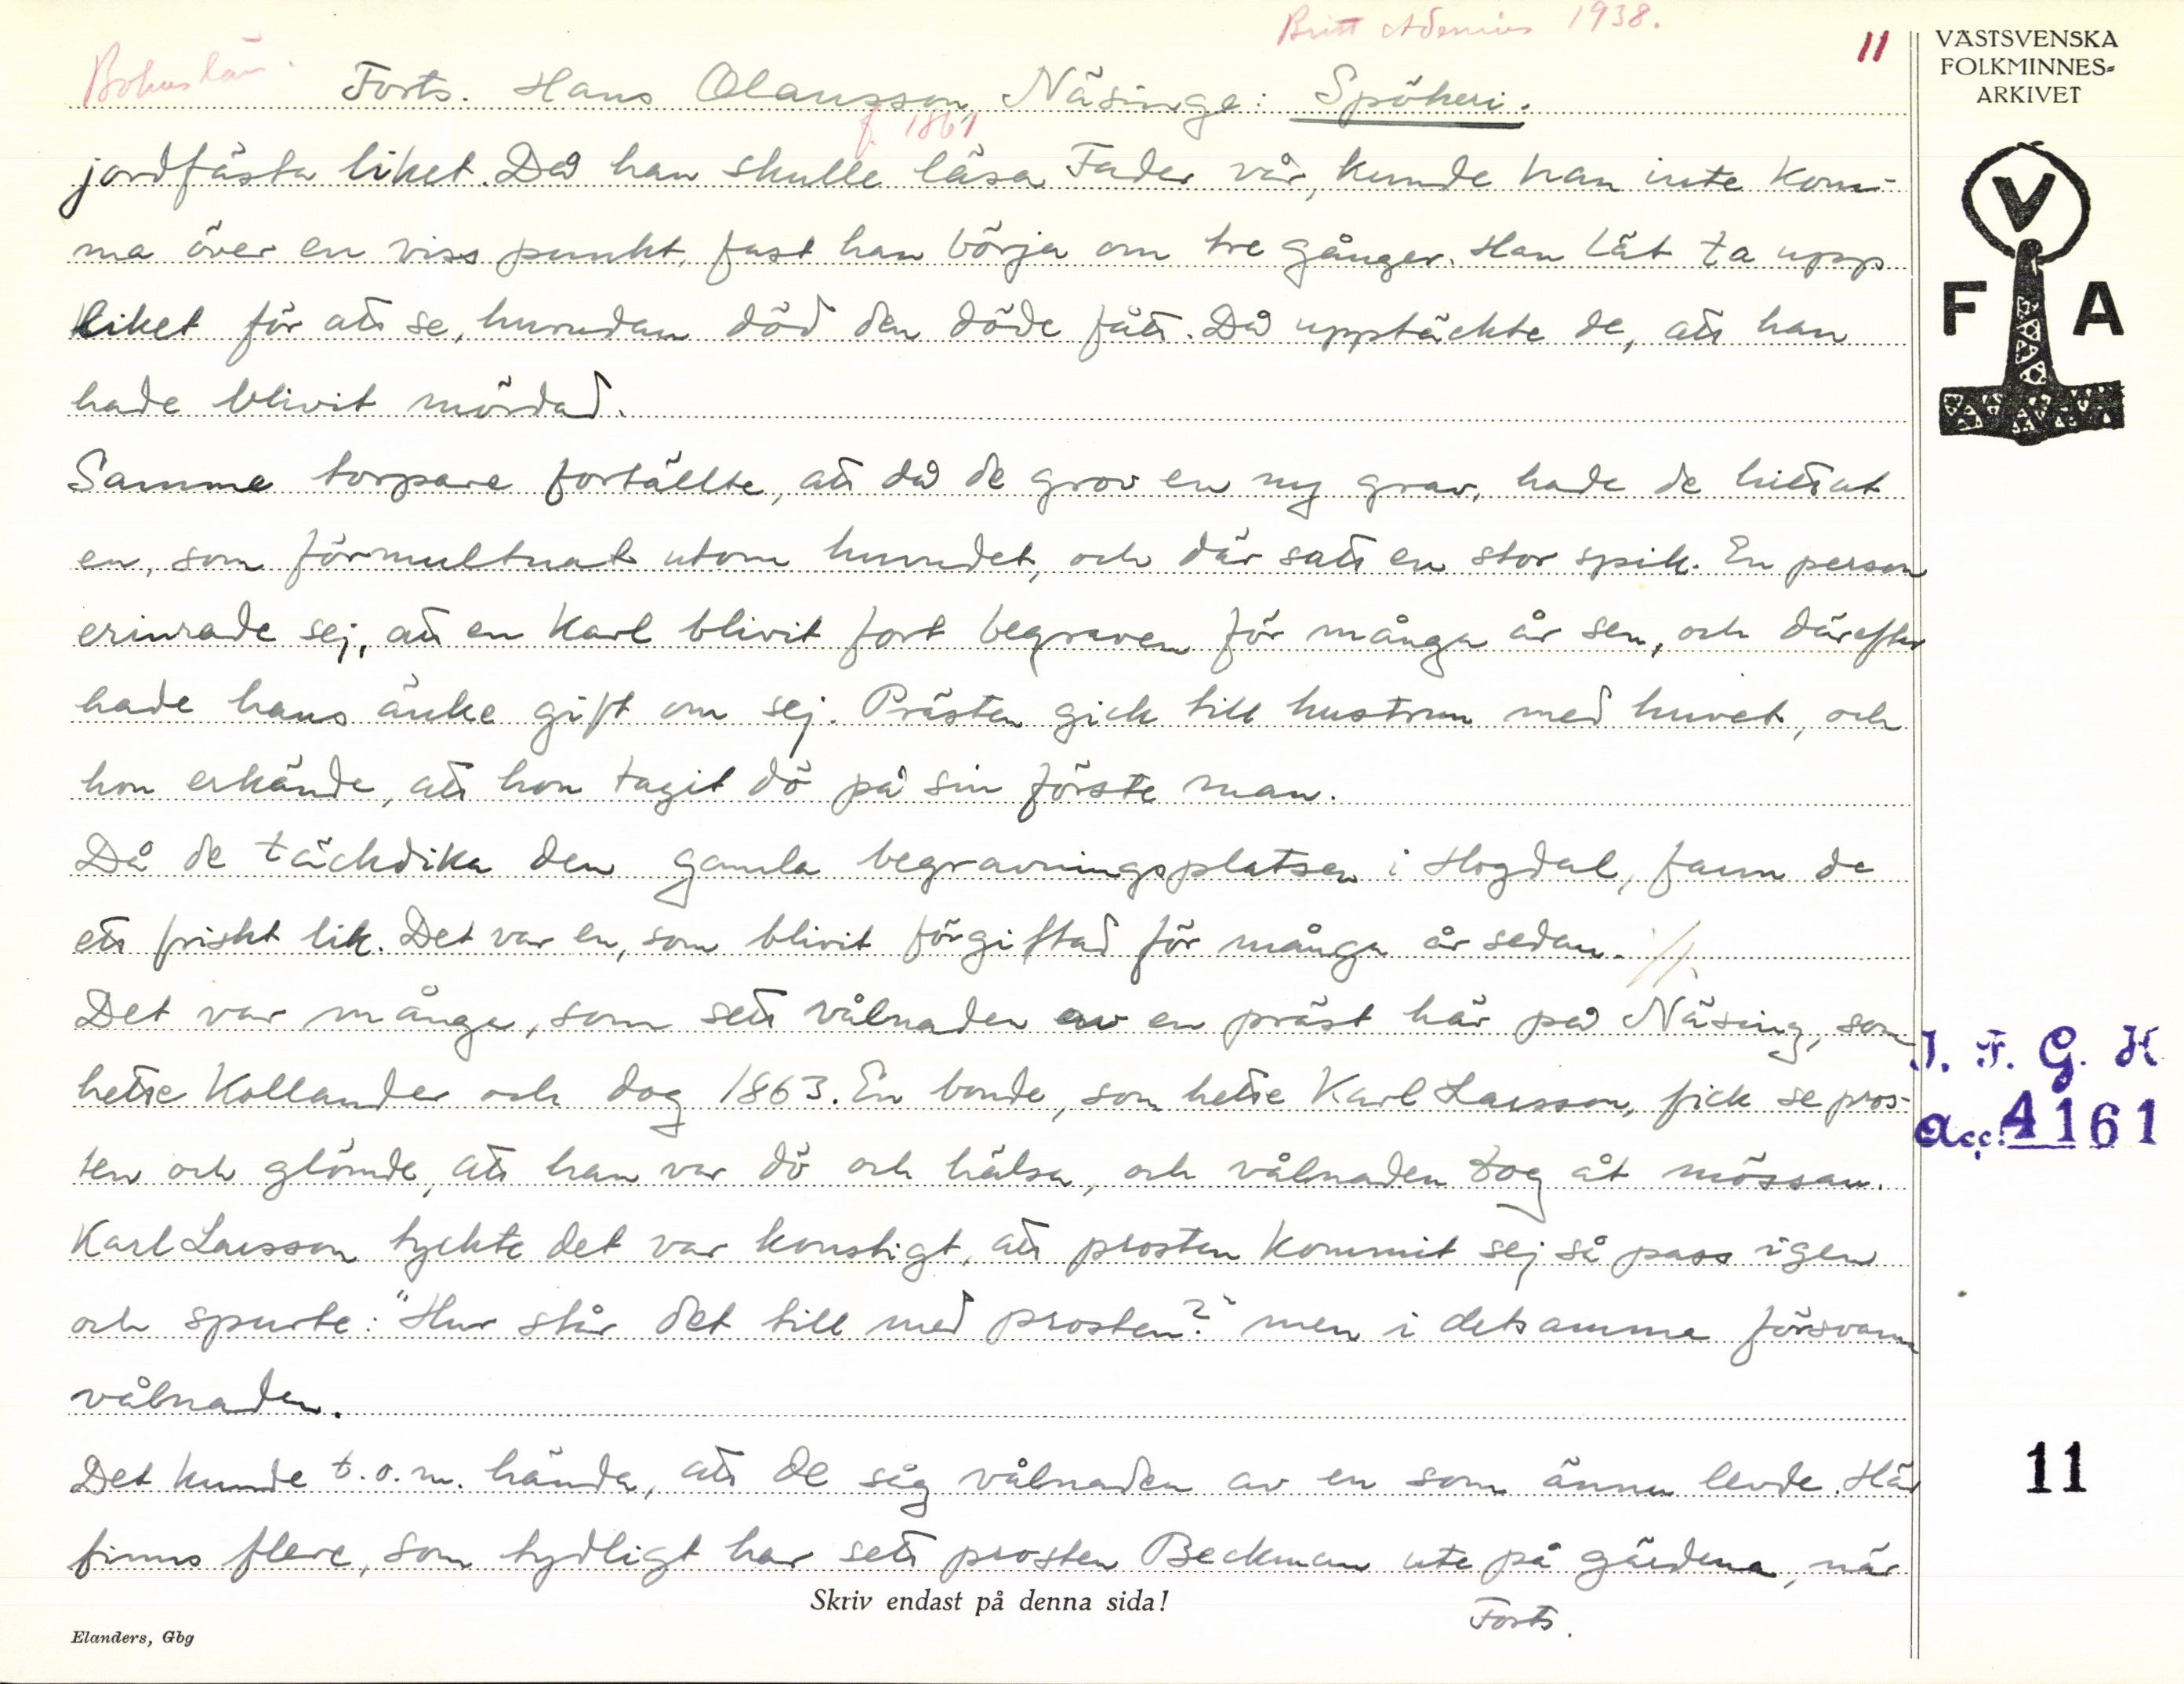 Britt Adenius 1938.
11
Bohuslän.
Forts. Hans Olausson, Näsinge: Spökeri.
f. 1861
jordfästa liket. Då han skulle läsa Fader vår, kunde han inte kom-
ma över en viss punkt, fast han börja om tre gånger. Han lät ta upp
liket för att se, hurudan död den döde fått. Då upptäckte de, att han
hade blivit mördad.
Samme torpare fortällte, att då de grov en ny grav, hade de hittat
en, som förmultnat utom huvudet, och där satt en stor spik. En person
erinrade sej, att en karl blivit fort begraven för många år sen, och därefter
hade hans änke gift om sej. Prästen gick till hustrun med huvet, och
hon erkände, att hon tagit dö på sin förste man.
Då de täckdika den gamla begravningsplatsen i Hogdal, fann de
ett friskt lik. Det var en, som blivit förgiftad för många år sedan. //.
Det var många, som sett vålnaden av en präst här på Näsing, som
hette Kollander och dog 1863. En bonde, som hette Karl Larsson, fick se pros-
ten och glömde, att han var dö och hälsa, och vålnaden tog åt mössan.
Karl Larsson tyckte det var konstigt, att prosten kommit sej så pass igen
och spurte: "Hur står det till med prosten?" men i detsamma försvann
vålnaden.
Det kunde t.o.m. hända, att de såg vålnaden av en som ännu levde. Här
finns flere, som tydligt har sett prosten Beckman ute på gärdena, när
Forts.
Skriv endast på denna sida!
Elanders, Gbg
VÄSTSVENSKA
FOLKMINNES-
ARKIVET
V
F A
I. F. G. H
Acc. 4161
11